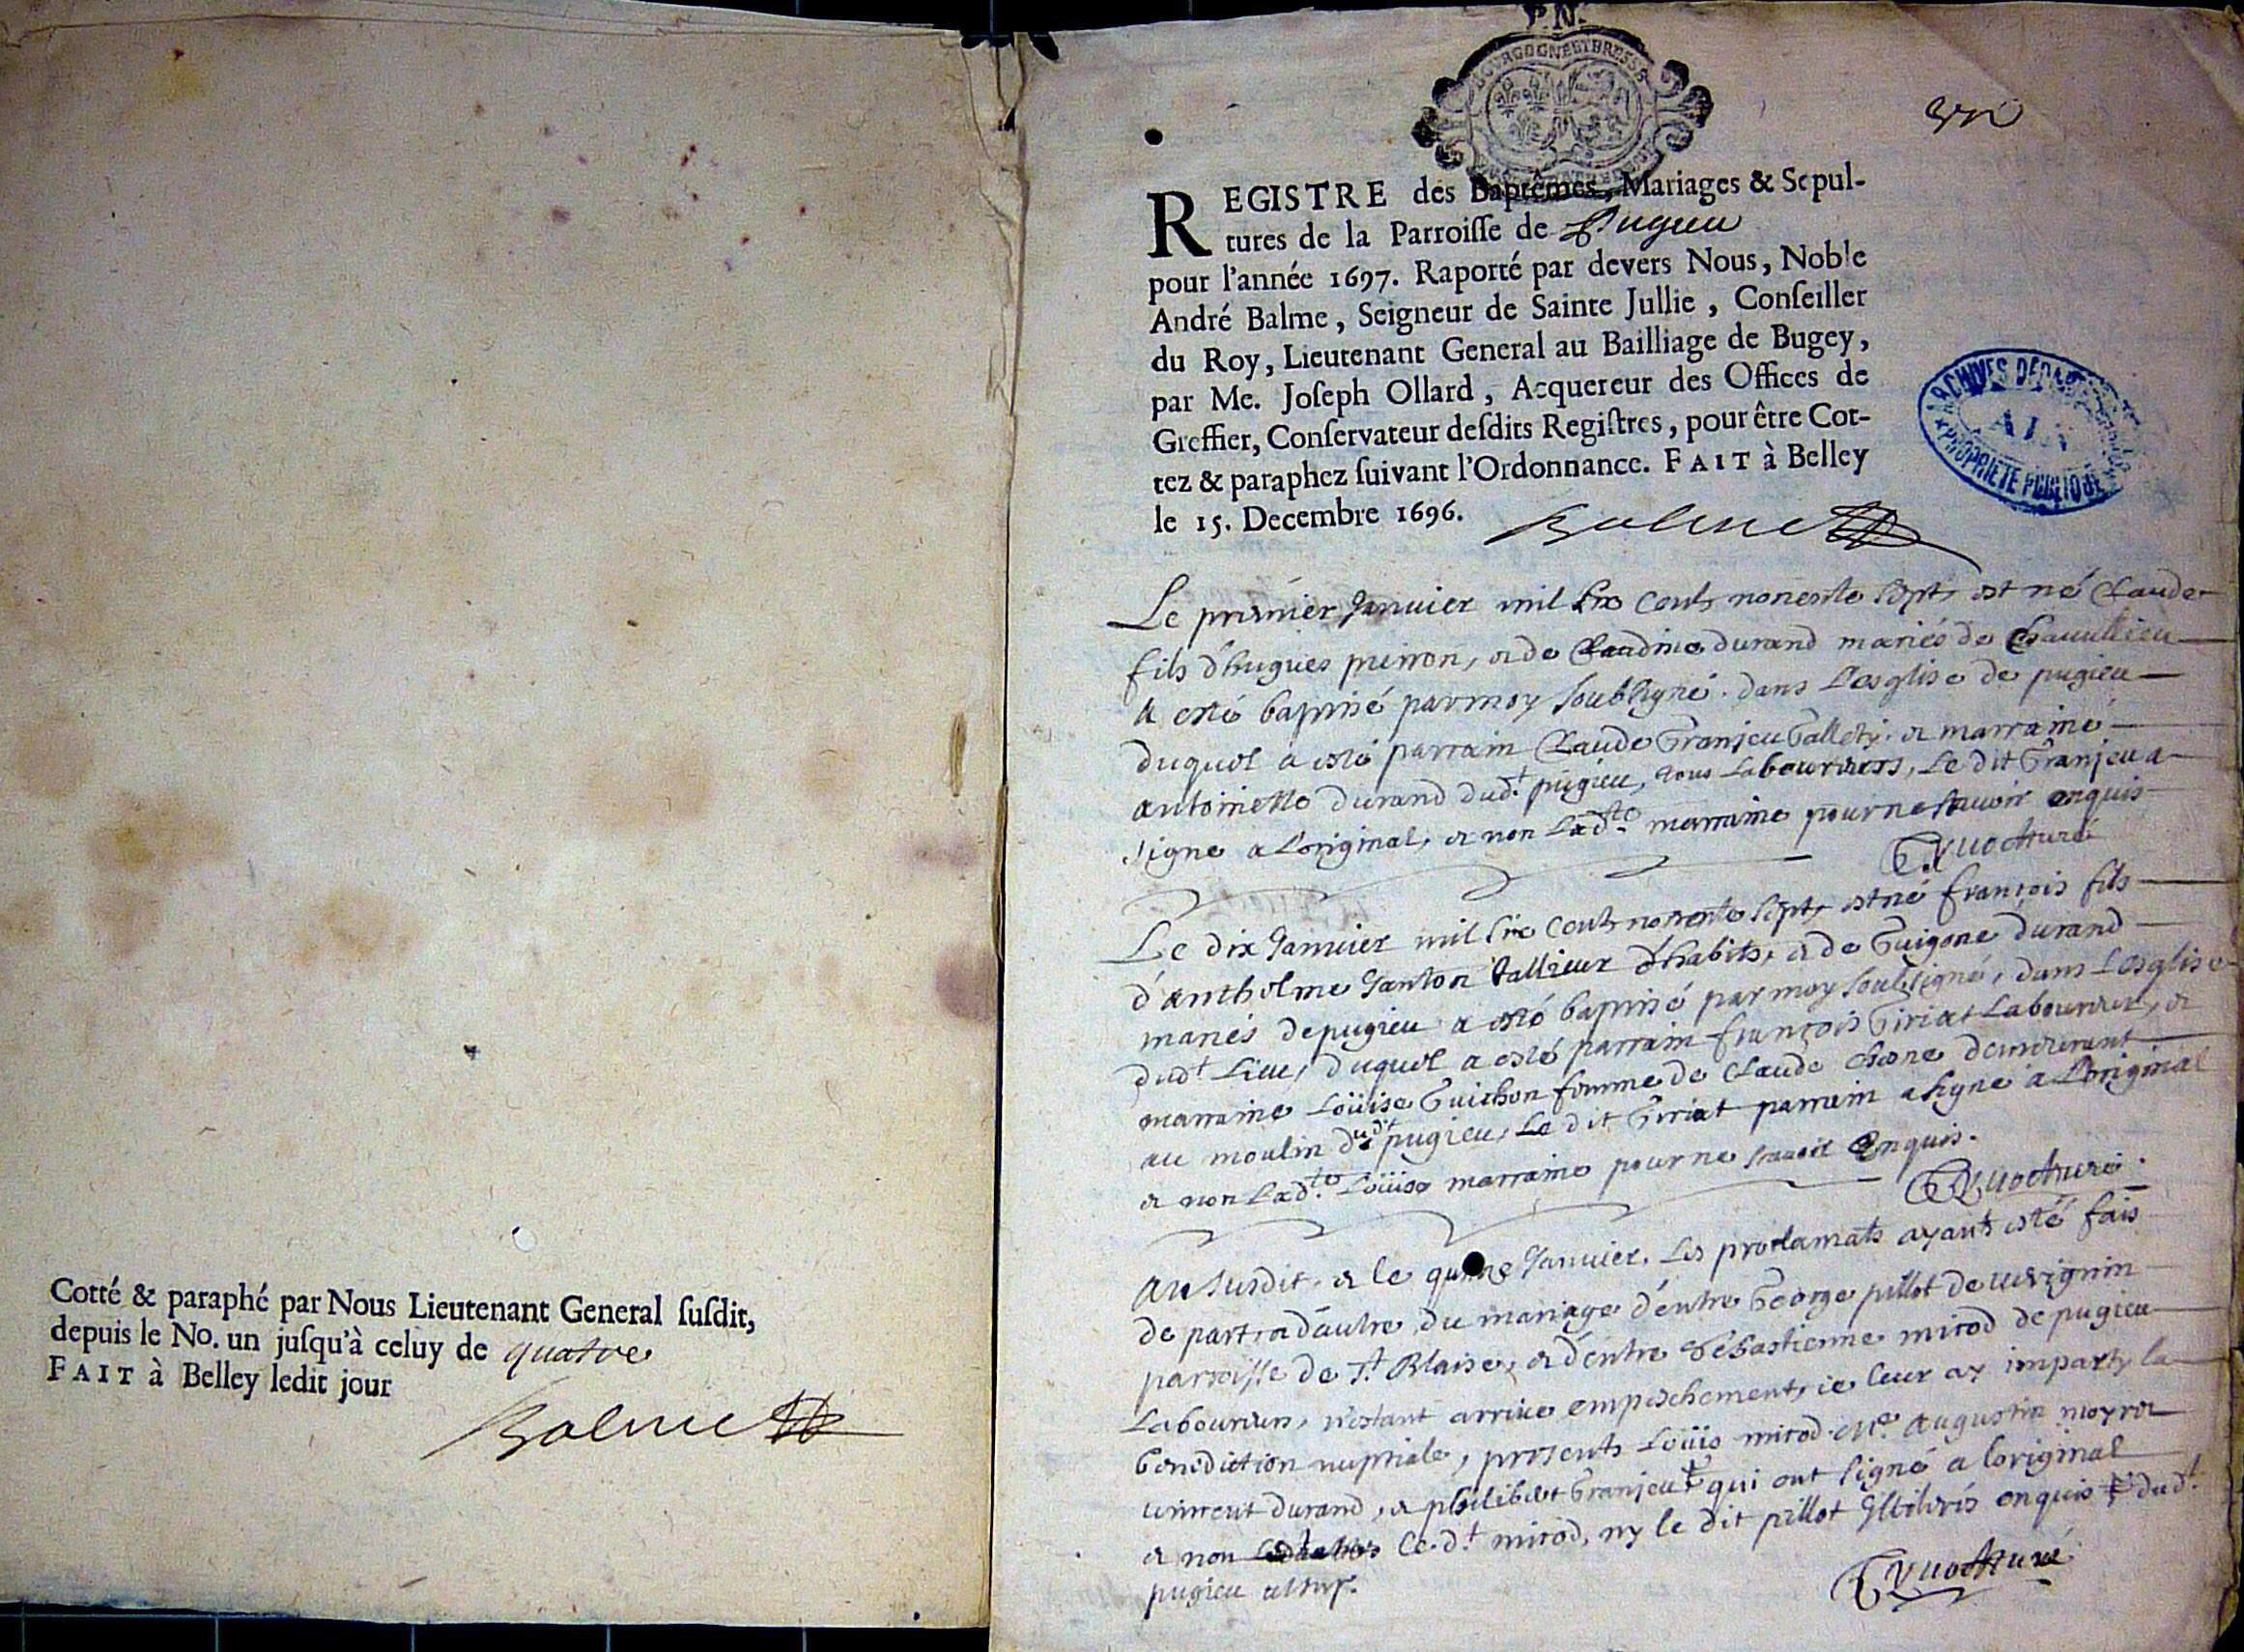 Cotté & paraphé par Nous Lieutenant General ſuſdit,
depuis le No. un juſqu'à celuy de quatre
FAIT à Belley ledit jour
Balme
P. N.
BOURGOGNE ET BRESSE
un
REGISTRE des Baptêmes, Mariages & Sepul-
tures de la Parroiſſe de Pugieu
pour l'année 1697. Raporté par devers Nous, Noble
André Balme, Seigneur de Sainte Jullie, Conſeiller
du Roy, Lieutenant General au Bailliage de Bugey,
par Me. Joſeph Ollard, Acquereur des Offices de
Greffier, Conſervateur deſdits Regiſtres, pour être Cot-
tez & paraphez ſuivant l'Ordonnance. FAIT à Belley
le 15. Decembre 1696.
Balme
ARCHIVES DÉPARTEMENTALES
AIN
PROPRIÉTÉ PUBLIQUE
Le premier Janvier mil six cents nonente sept, est né Claude
fils d'hugues peirron, & de Claudine durand mariés de
a esté baptisé par moy soubsigné dans L'esglise de pugieu
duquel a esté parrain Claude Granjeu & marraine
antoinette durand dud.t pugieu, tous Laboureurs, Le dit Granjeu a
signe a L'original, & non Lad.te marraine pour ne scavoir enquis
Le dix Janvier mil six cents nonente sept, est né françois fils
d'anthelme Janton tallieur d'habits, & de Guigone durand
mariés de pugieu a esté baptisé par moy soubsigné, dans L'esglise
dud.t Lieu, duquel a esté parrain françois Giriat Laboureur, &
marraine Loüise Guichon femme de Claude demeurant
au moulin dud.t pugieu, Le dit Giriat parrain a signe a L'original
& non Lad.te Loüise marraine pour ne scavoir Enquis.
An susdit, & le quinze Janvier, Les proclamats ayants esté fais
de part & d'autre du mariage d'entre George pillot de uvrignin
parroisse de S.t Blaise, & d'entre Sebastienne mirod de pugieu
Laboureurs, n'estant arrive empeschement, ie leur ay imparty la
benediction nuptiale, presents Loüis mirod M.e Augustin moyret
vincent durand, & philibert Granjeu qui ont signé a loriginal
& non Le d.t mirod, ny le dit pillot Illiterés enquis dud.t
pugieu